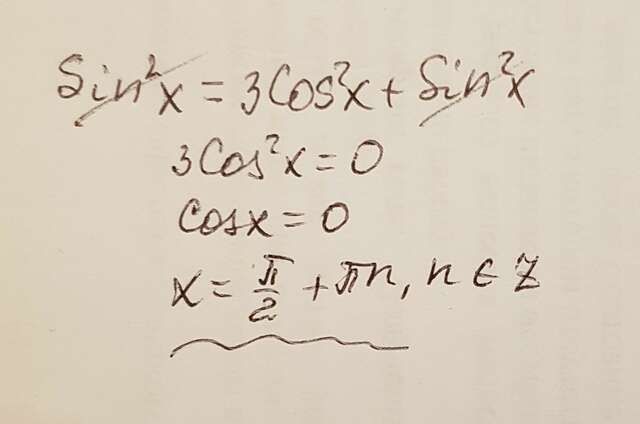 Sin²x = 3Cos²x + Sin²x
3Cos²x = 0
Cosx = 0
x = π/2 + πn, n ∈ Z